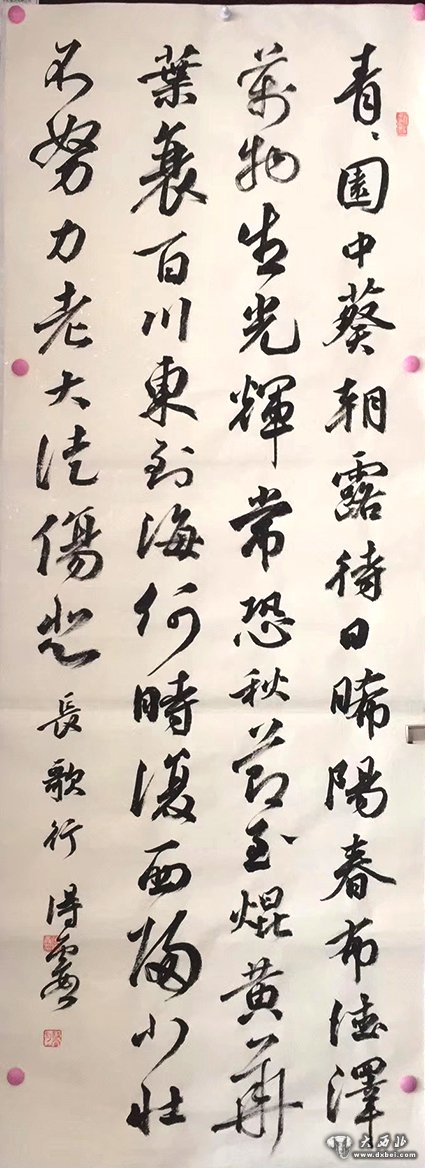 青々園中葵朝露待日晞陽春布德澤
萬物生光輝常恐秋節至焜黃華
葉衰百川東到海何時復西歸少壯
不努力老大徒傷悲 長歌行 得
大西北
www.dxbei.com